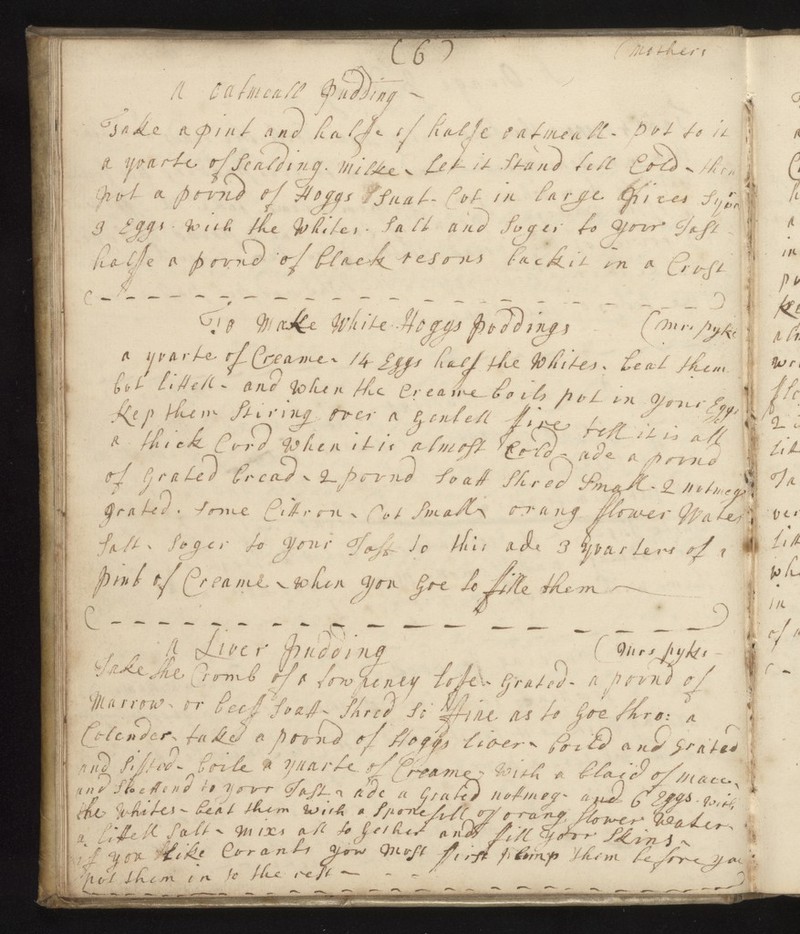 (6)
(mothers
A oatmeall pudding
Take a pint and halfe of halfe oatmeall put to it
a quarte of Scalding milke Let it Stand tell Cold then
put a pound of Hoggs Suat Cut in large pices
3 Eggs with the whites Salt and Suger to your Tast
halfe a pound of black resons back it in a Crust
To make white Hoggs puddings (mrs pyke
a quarte of Creame 14 Eggs half the whites beat them
but littell and when the Creame boils put in your Eggs
kep them Stiring over a gentell fire tell it is all
a thick Curd when it is almost Cold ade a pound
of grated bread 2 pound Suatt Shred Small 2 nutmegs
grated some Cittron Cut Small orang flower Water
Salt Suger to your Tast to this ade 3 quarters of a
pint of Creame when you goe to fille them
A Liver pudding (mrs pyke
Take the Cromb of a towpeney lofe grated a pound of
Marrow or beef Suatt Shred So fine as to goe thro: a
Colender take a pound of Hoggs liver boild and grated
and Sifted boile a quarte of Creame with a blaid of mace
and Swettend to your Tast ade a grated nutmeg and 6 Eggs with
the whites beat them with a Sponefull of orang flower Water
a littell Salt mixs all to gether and fill your Skins
if you like Corants you must first plump them before you
put them in to the rest